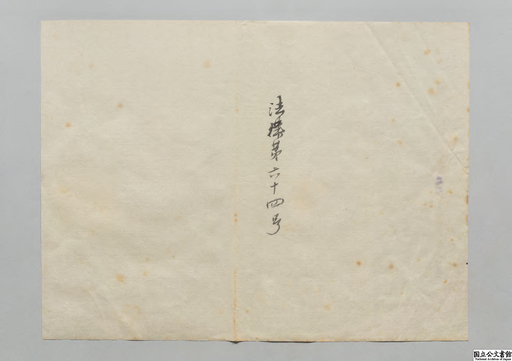 法律第六十四号
国立公文書館
National Archives of Japan